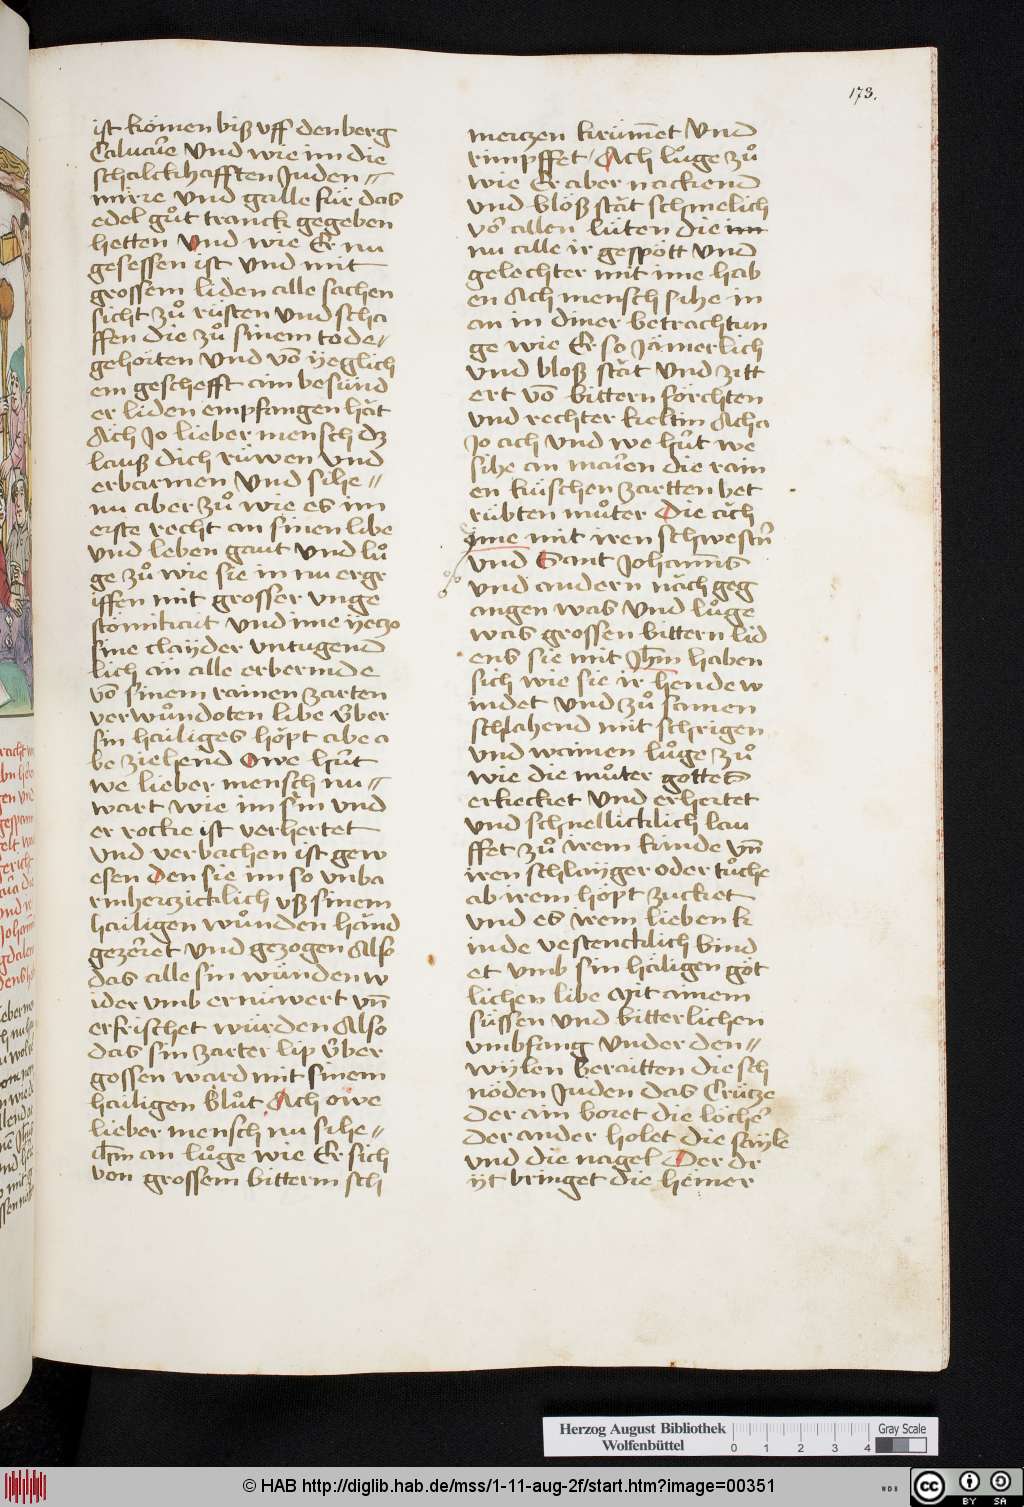 173.
ist kömen biß vff den berg
Caluarie Vnd wie im die
schalckhafften Juden //
mirre vnd galle für das
edel gůt tranck gegeben
hetten vnd wie Er nu
gesessen ist vnd mit
grossem liden alle sachen
sicht zů rüsten vnd scha
ffen die zů sinem tode //
gehörten vnd vō yeglich
em geschefft ain besund
er liden empfangen hät
Ach Jo lieber mensch dz
lauß dich rüwen vnd
erbarmen vnd sihe //
nu aber zů wie es im
erste recht an sinen libe
vnd leben gaut vnd lů
ge zů wie sie in nu ergr
iffen mit grosser vnge
stömikait vnd ime yeczo
sine clayder vntugend
lich ān alle erbermde
vō sinem rainen zarten
verwůndoten libe v̈ber
sin hailiges höpt abe a
be ziehend Owe hüt
we lieber mensch nu //
wart wie im sin vnd
er rocke ist verhertet
vnd verbachen ist gew
esen den sie im so vnba
rmherczicklich vß sinem
hailigen wůnden händ
gezerret vnd gezogen Also
das alle sin wünden w
ider vmb ernüwert vn̄
erfrischet würden Also
das sin zarter lip v̈ber
gossen ward mit sinem
hailigen blůt Ach owe
lieber mensch nu sihe //
Jhm an lůge wie Er sich
von grossem bitterm sch
merczen krümet Vnd
rimpffet / Ach lůge zů
wie Er aber nackend
vnd blöß stät schmelich
vor allen lüten die im
nu alle ir gespött vnd
gelechter mit ime hab
en Ach mensch sihe in
an in diner betrachtun
ge wie Er so Jämerlich
vnd bloß stät vnd zitt
ert vō bittern förchten
vnd rechter keltin Acha
Jo ach vnd we hüt we
sihe an marien die rain
en küschen zartten bet
rübten můter Die ach
ime mit iren schwestn̄
vnd Sant Johannis
vnd andern näch geg
angen was vnd lůge
was grossen bittern lid
ens sie mit Jhm haben
sich wie sie ir hende w
indet vnd zů samen
schlahend mit schrigen
vnd wainen lůge zů
wie die můter gottes
erkecket vnd erhertet
vnd schnellicklich lau
ffet zů irem kinde vn̄
iren schlayger oder tůche
ab irem höpt zucket
vnd es irem lieben k
inde vestencklich bind
et vmb sin häligen göt
lichen libe Mit ainem
süssen vnd bitterlichen
vmbfang vnder den //
wylen beraitten die sch
nöden Juden das Crücze
der ain boret die löcher
der ander holet die sayle
vnd die nagel Der dr
yt bringet die hemer
Herzog August Bibliothek
Wolfenbüttel
0 1 2 3 4
Gray Scale
© HAB http://diglib.hab.de/mss/1-11-aug-2f/start.htm?image=00351
WDB
cc BY SA